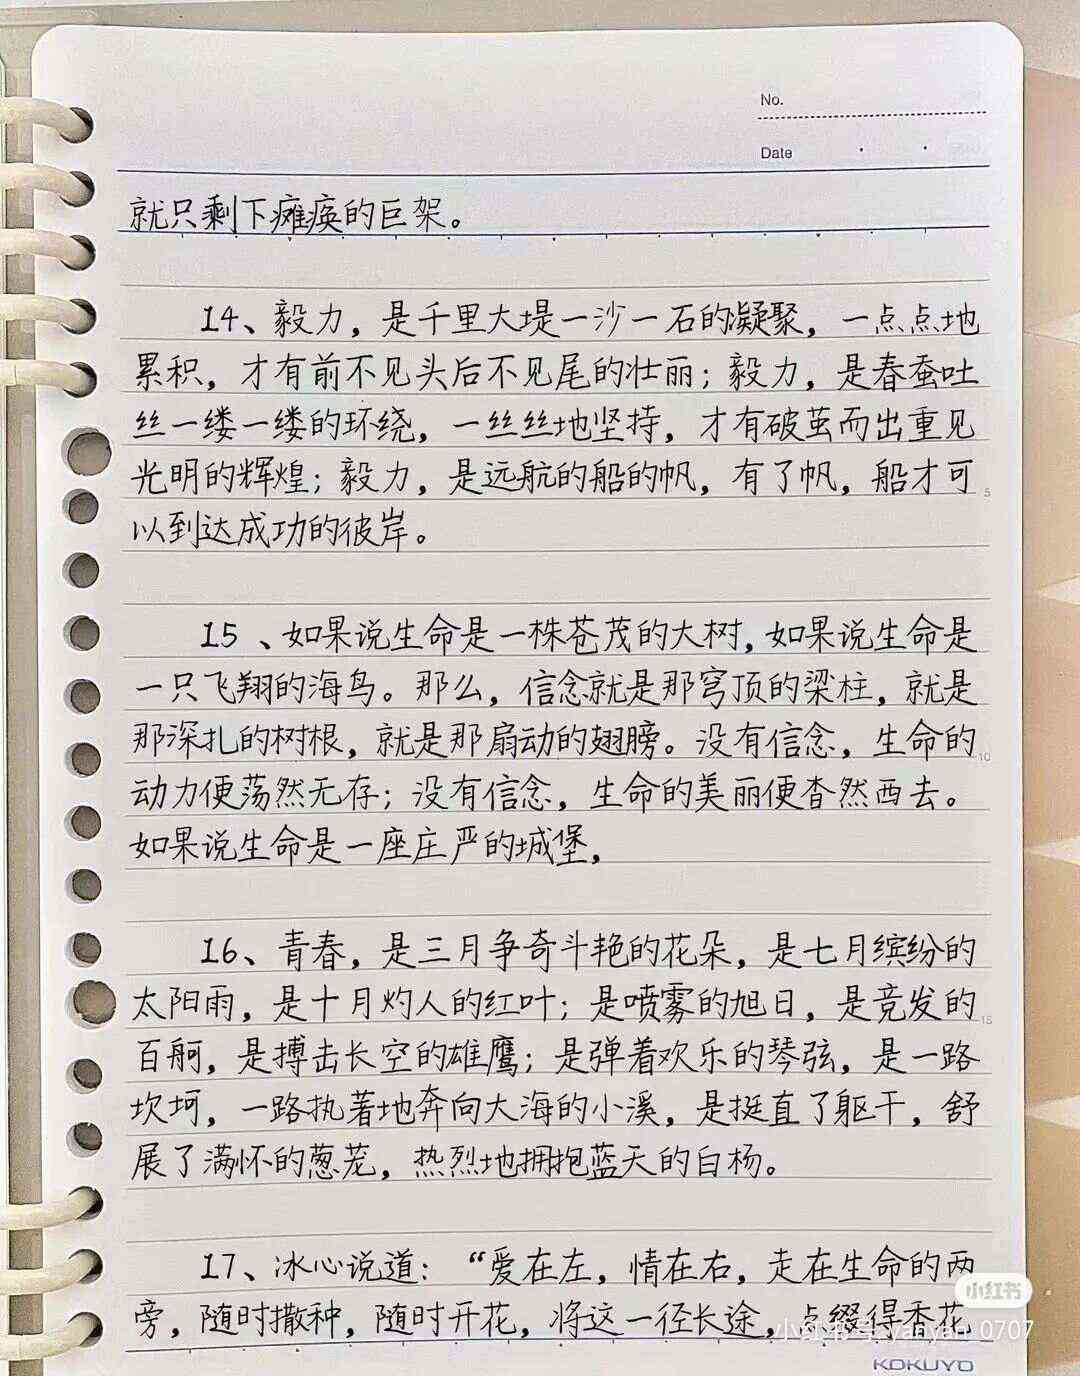 No.
Date
就只剩下瘫痪的巨架。
14、毅力，是千里大堤一沙一石的凝聚，一点点地
累积，才有前不见头后不见尾的壮丽；毅力，是春蚕吐
丝一缕一缕的环绕，一丝丝地坚持，才有破茧而出重见
光明的辉煌；毅力，是远航的船的帆，有了帆，船才可
5
以到达成功的彼岸。
15、如果说生命是一株苍茂的大树，如果说生命是
一只飞翔的海鸟。那么，信念就是那穹顶的梁柱，就是
那深扎的树根，就是那扇动的翅膀。没有信念，生命的
10
动力便荡然无存；没有信念，生命的美丽便杳然西去。
如果说生命是一座庄严的城堡，
16、青春，是三月争奇斗艳的花朵，是七月缤纷的
太阳雨，是十月灼人的红叶；是喷雾的旭日，是竞发的
15
百舸，是搏击长空的雄鹰；是弹着欢乐的琴弦，是一路
坎坷，一路执著地奔向大海的小溪，是挺直了躯干，舒
展了满怀的葱茏，热烈地拥抱蓝天的白杨。
17、冰心说道：“爱在左，情在右，走在生命的两
旁，随时撒种，随时开花，将这一径长途，点缀得香花
小红书
小红书号:yanyan_0707
KOKUYO